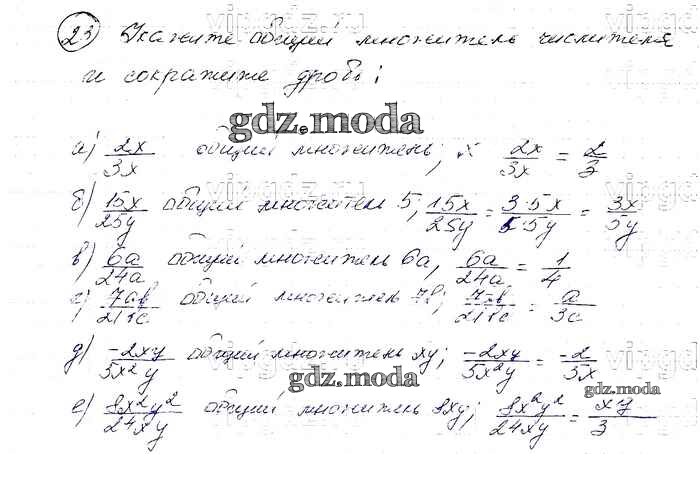 23 Укажите общий множитель числителя
и сократите дробь:
gdz.moda
а) 2x/3x общий множитель; x 2x/3x = 2/3
б) 15x/25y общий множител 5; 15x/25y = 3·5x/5·5y = 3x/5y
в) 6a/24a общий множитель 6a, 6a/24a = 1/4
г) 7ab/21bc общий множитель 7b; 7ab/21bc = a/3c
д) -2xy/5x²y общий множитель xy; -2xy/5x²y = -2/5x
gdz.moda
gdz.moda
е) 8x²y²/24xy общий множитель 8xy; 8x²y²/24xy = xy/3